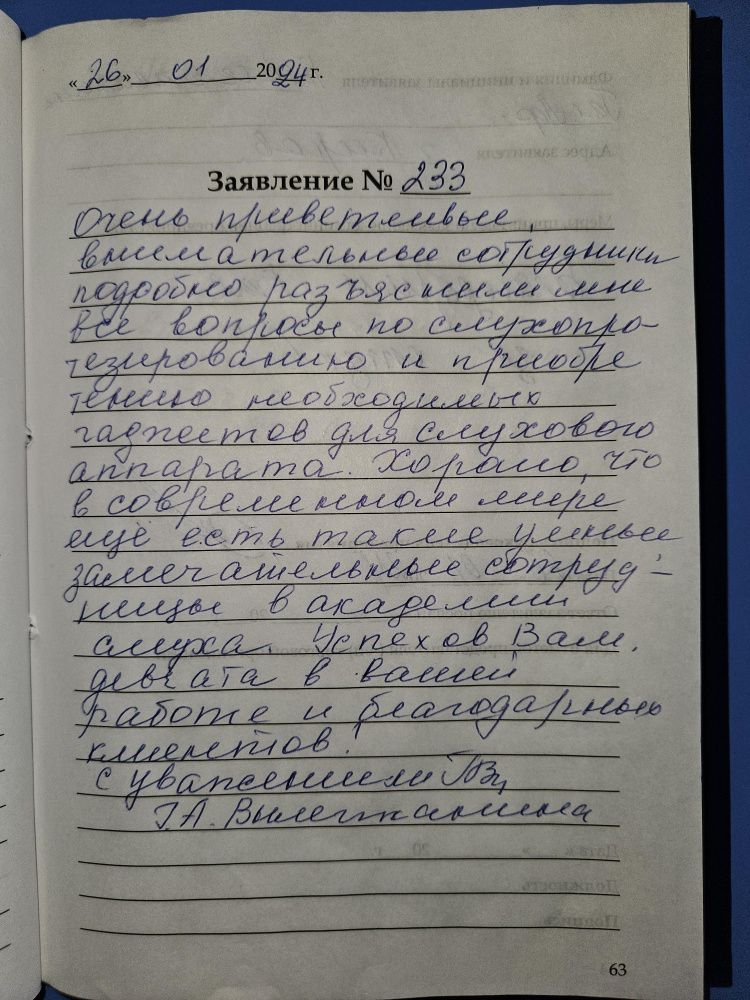 «26» 01 2024 г.
Заявление № 233
Очень приветливые,
внимательные сотрудники
подробно разъяснили мне
все вопросы по слухопро-
тезированию и приобре
тению необходимых
гаджетов для слухового
аппарата. Хорошо, что
в современном мире
ещё есть такие умные
замечательные сотруд-
ницы в академии
слуха. Успехов Вам,
девчата в вашей
работе и благодарных
клиентов!
с уважением
Г.А. Вылегжанина
63